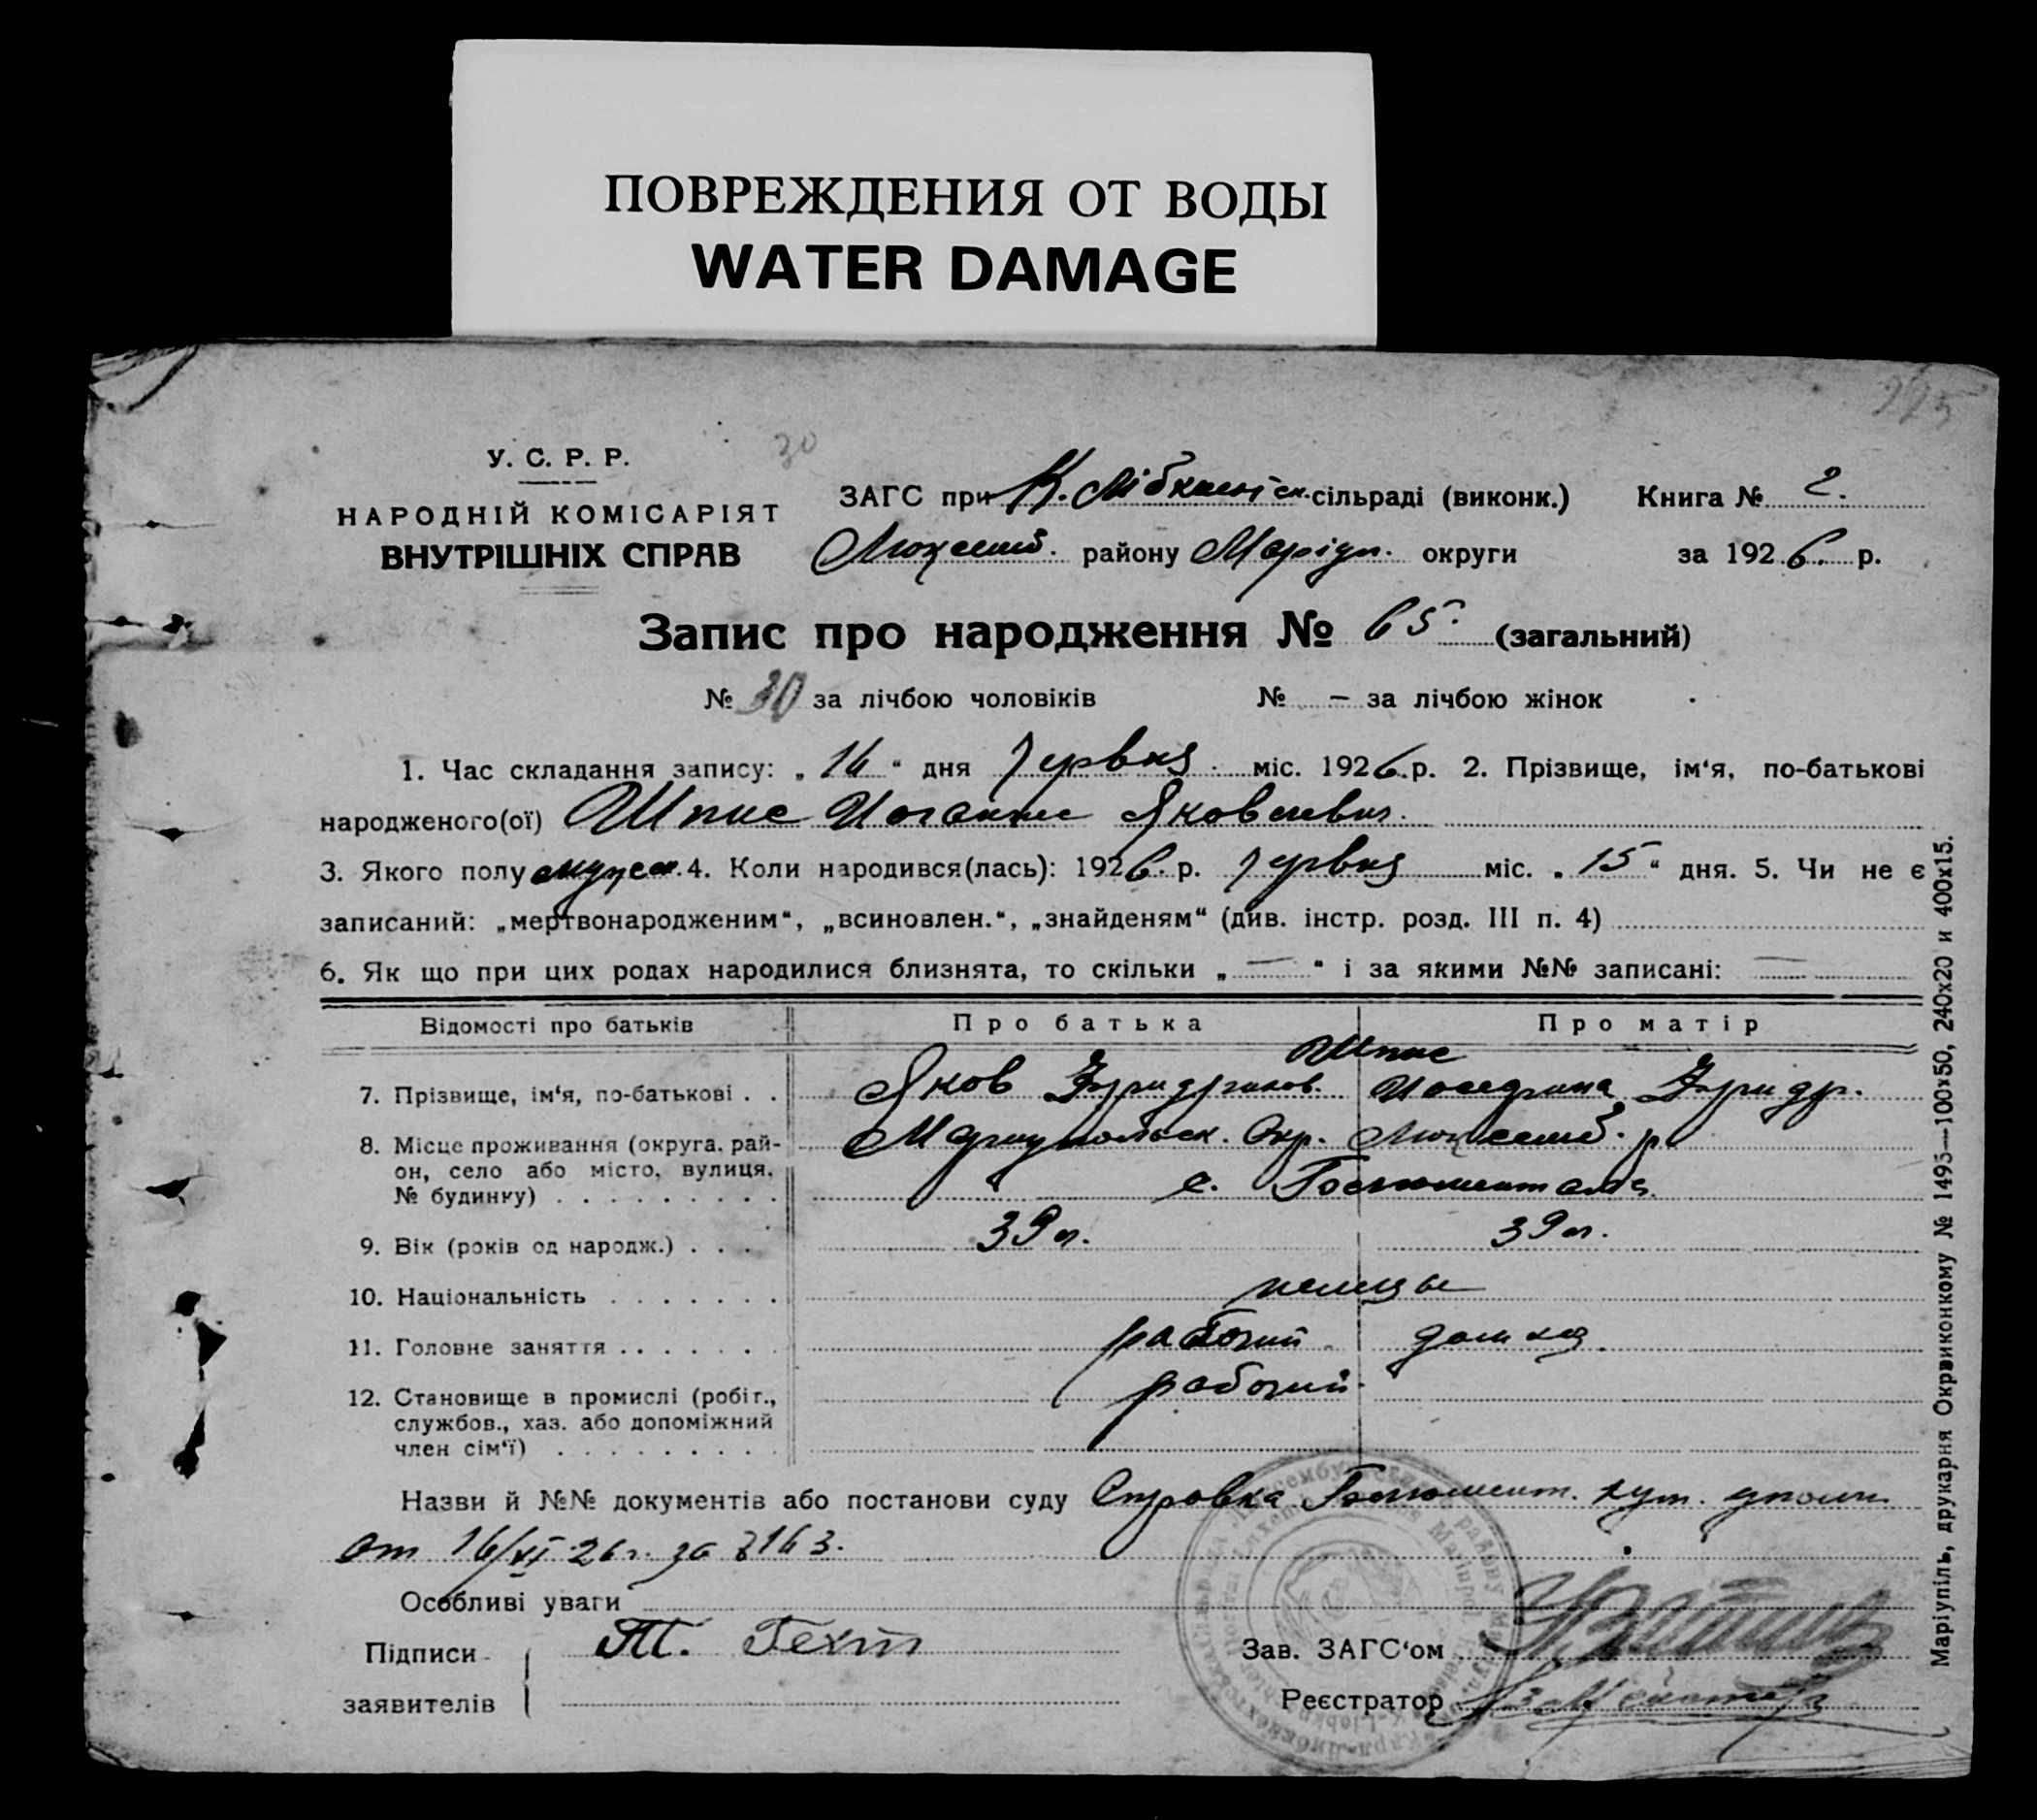 ПОВРЕЖДЕНИЯ ОТ ВОДЫ
WATER DAMAGE
У. С. Р. Р.
НАРОДНІЙ КОМІСАРІЯТ
ВНУТРІШНІХ СПРАВ
30
ЗАГС при К. Лібкнехтск. сільраді (виконк.) Книга № 2.
Люксемб. району Маріуп. округи за 1926. р.
Запис про народження № 65. (загальний)
№ 30 за лічбою чоловіків № – за лічбою жінок
1. Час складання запису: „ 16 “ дня Червня міс. 1926 р. 2. Прізвище, ім‘я, по-батькові
народженого(ої) Шпис Иоганнес Яковлевич.
3. Якого полу мужск. 4. Коли народився(лась): 1926. р. Червня міс. „ 15 “ дня. 5. Чи не є
записаний: „мертвонародженим“, „всиновлен.“, „знайденям“ (див. інстр. розд. III п. 4)
6. Як що при цих родах народилися близнята, то скільки „ — “ і за якими №№ записані: —
Відомості про батьків Про батька Про матір
Шпис
7. Прізвище, ім‘я, по-батькові . . Яков Фридрихов. Фридр.
8. Місце проживання (округа, рай- Мариупольск. Окр. Люксемб. р.
он, село або місто, вулиця, с.
№ будинку)
9. Вік (років од народж.) . . . 39 л. 39 л.
10. Національність немцы
11. Головне заняття рабочий домхоз.
12. Становище в промислі (робіт., рабочий.
службов., хаз. або допоміжний
член сім‘ї)
Назви й №№ документів або постанови суду Справка хут.
от 16/VI 26 г. за 163.
Особливі уваги
Підписи Гехт
заявителів
Зав. ЗАГС‘ом
Реєстратор
Маріупіль, друкарня Окрвиконкому № 1495—100х50, 240х20 и 400х15.